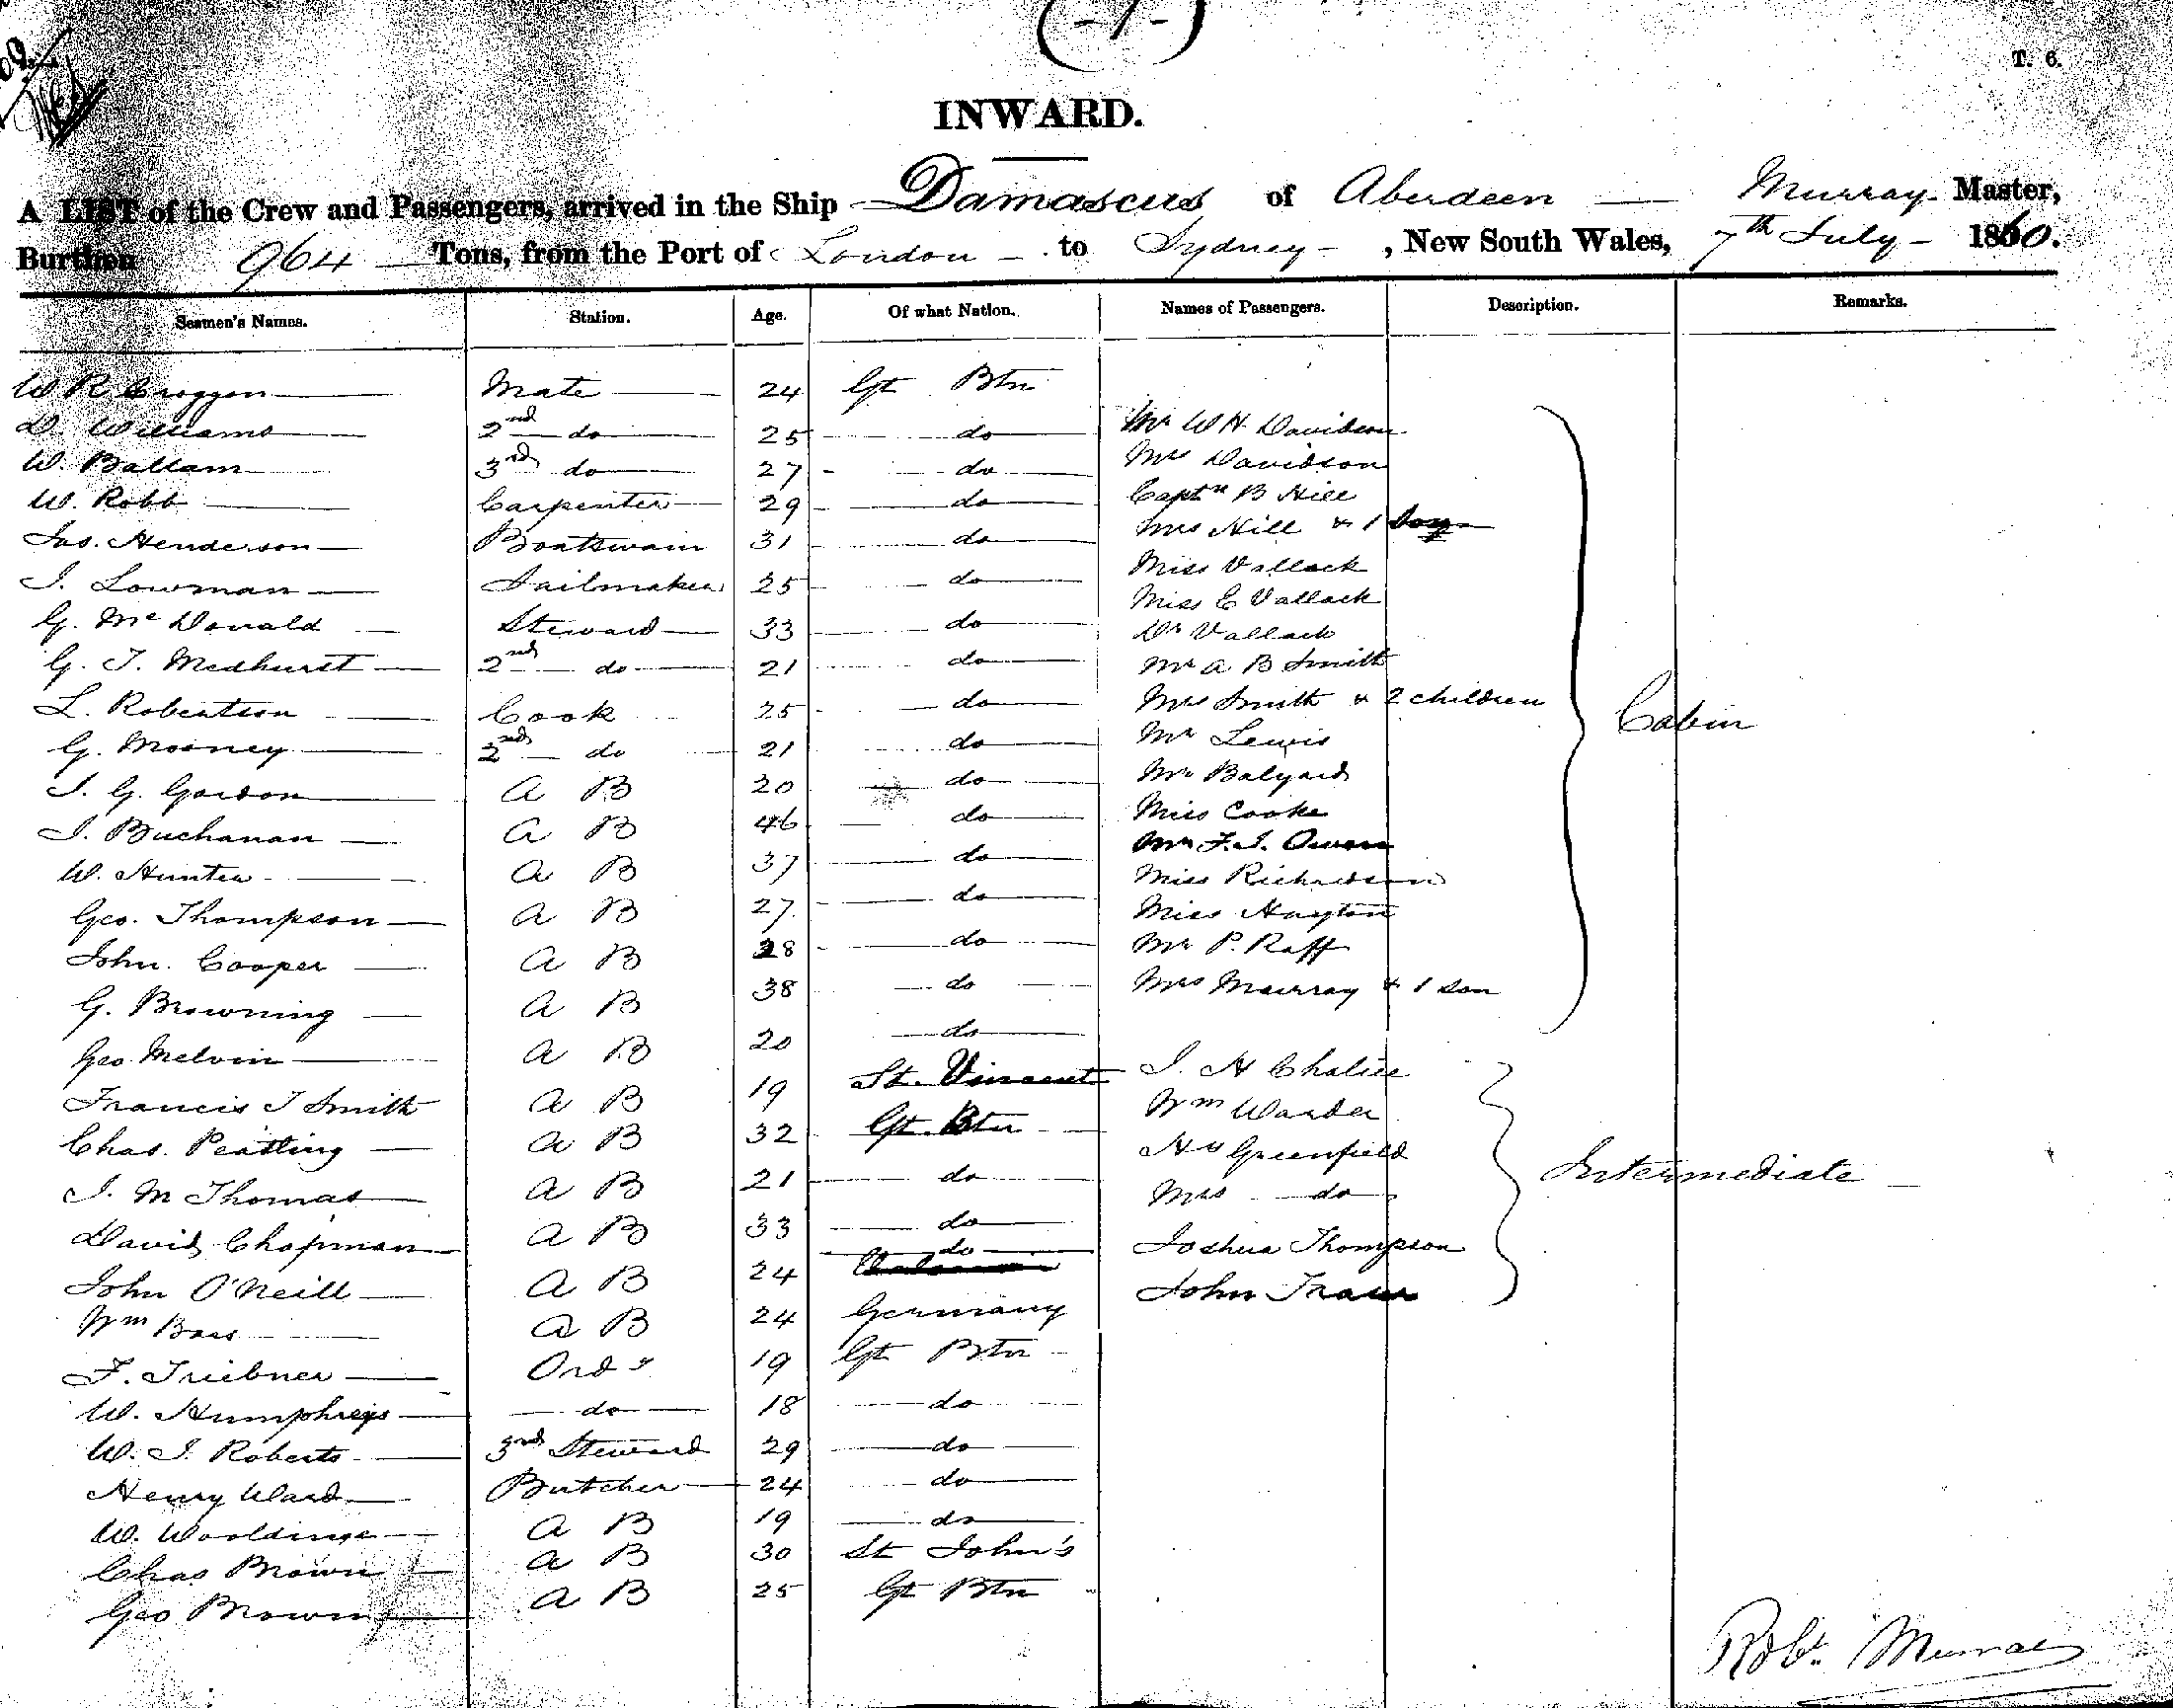 (-1-)
T. 6.
INWARD.
A LIST of the Crew and Passengers, arrived in the Ship Damascus of Aberdeen Murray Master,
Burthen 964 Tons, from the Port of London to Sydney, New South Wales, 7th July 1860.
Seamen's Names. Station. Age. Of what Nation. Names of Passengers. Description. Remarks.
W R Croggon Mate 24 Gt Btn
D. Williams 2nd do 25 do Mr W H Davidson
W. Ballam 3rd do 27 do Mrs Davidson
W. Robb Carpenter 29 do Captn B Hill
Jas. Henderson Boatswain 31 do Mrs Hill & 1
J. Lowman Sailmaker 25 do Miss Vallack
G. McDonald Steward 33 do Miss C Vallack
G. T. Medhurst 2nd do 21 do Dr Vallack
L. Robertson Cook 25 do Mr A B Smith
G. Mosney 2nd do 21 do Mrs Smith & 2 children
J. G. Gordon A B 20 do Mr Lewis
J. Buchanan A B 46 do Mr Balyard
W. Hunter A B 37 do Miss Cooke
Geo. Thompson A B 27 do Mr F. J. Owen
John Cooper A B 28 do Miss Richardson
G. Browning A B 38 do Miss Hayton
Geo Melvin A B 20 do Mr P. Raff
Francis J Smith A B 19 St. Vincent Mrs Murray & 1 son
Cabin
Chas. Peatling A B 32 Gt. Btn J. H Chalice
J. M Thomas A B 21 do Wm Warder
David Chapman A B 33 do Hy Greenfield
John O'Neill A B 24 do Mrs do
Wm Bass A B 24 Germany Joshua Thompson
F. Triebner Ordy 19 Gt Btn John
Intermediate
W. Humphreys do 18 do
W. J. Roberts 3rd Steward 29 do
Henry Ward Butcher 24 do
W. Wooldinge A B 19 do
Chas Brown A B 30 St John's
Geo Brown A B 25 Gt Btn
Robt. Murray